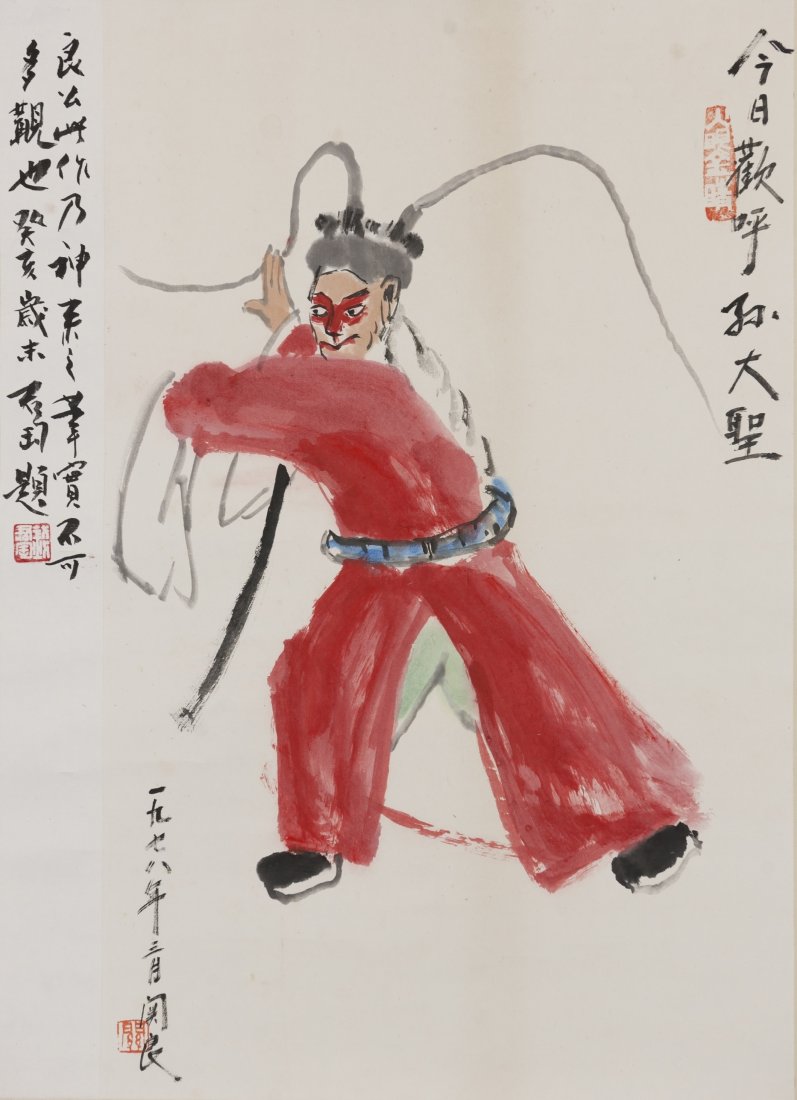 今日歡呼孫大聖
一九七八年三月關良
良公此作乃神來之筆實不可
多觀也癸亥歲末君匋題